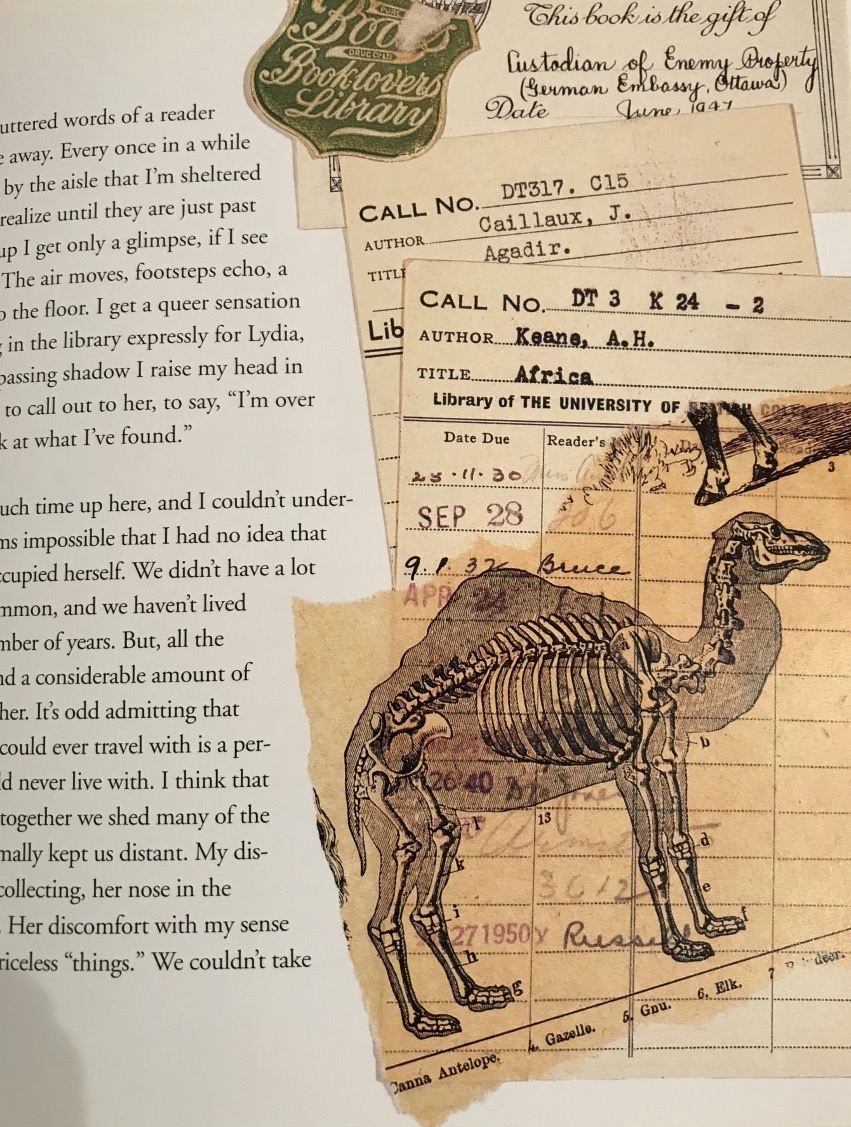 uttered words of a reader
away. Every once in a while
by the aisle that I'm sheltered
realize until they are just past
up I get only a glimpse, if I see
The air moves, footsteps echo, a
the floor. I get a queer sensation
in the library expressly for Lydia,
passing shadow I raise my head in
to call out to her, to say, “I'm over
at what I've found.”
uch time up here, and I couldn't under-
ms impossible that I had no idea that
ccupied herself. We didn't have a lot
mmon, and we haven't lived
mber of years. But, all the
nd a considerable amount of
her. It's odd admitting that
could ever travel with is a per-
ld never live with. I think that
together we shed many of the
mally kept us distant. My dis-
collecting, her nose in the
. Her discomfort with my sense
riceless “things.” We couldn't take
PURE
DRUG CO LTD
Booklovers
Library
This book is the gift of
Custodian of Enemy Property
(German Embassy, Ottawa)
Date June, 1947
CALL NO. DT317. C15
AUTHOR Caillaux, J.
TITL Agadir.
Lib
CALL NO. DT 3 K 24 - 2
AUTHOR Keane, A.H.
TITLE Africa
Library of THE UNIVERSITY OF BRITISH COL
Date Due Reader's
25·11·30
SEP 28
9.1.32 Bruce
APR 24
3
a
b
26 40
13
k
d
3612
e
i
f
27 1950 Russell
h
g
Canna Antelope. 4. Gazelle. 5. Gnu. 6. Elk. 7